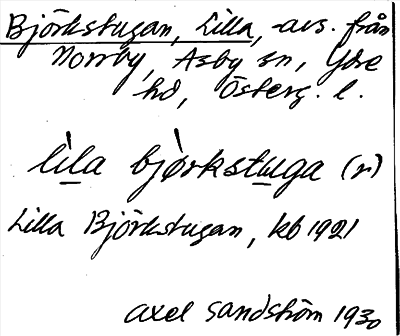 Björkstugan, Lilla, -avs. från
Norrby, Asby sn, Ydre
hd, Österg. l.
lìla bjòrkstuga (r)
Lilla Björkstugan, kb 1921
Axel Sandström 1930